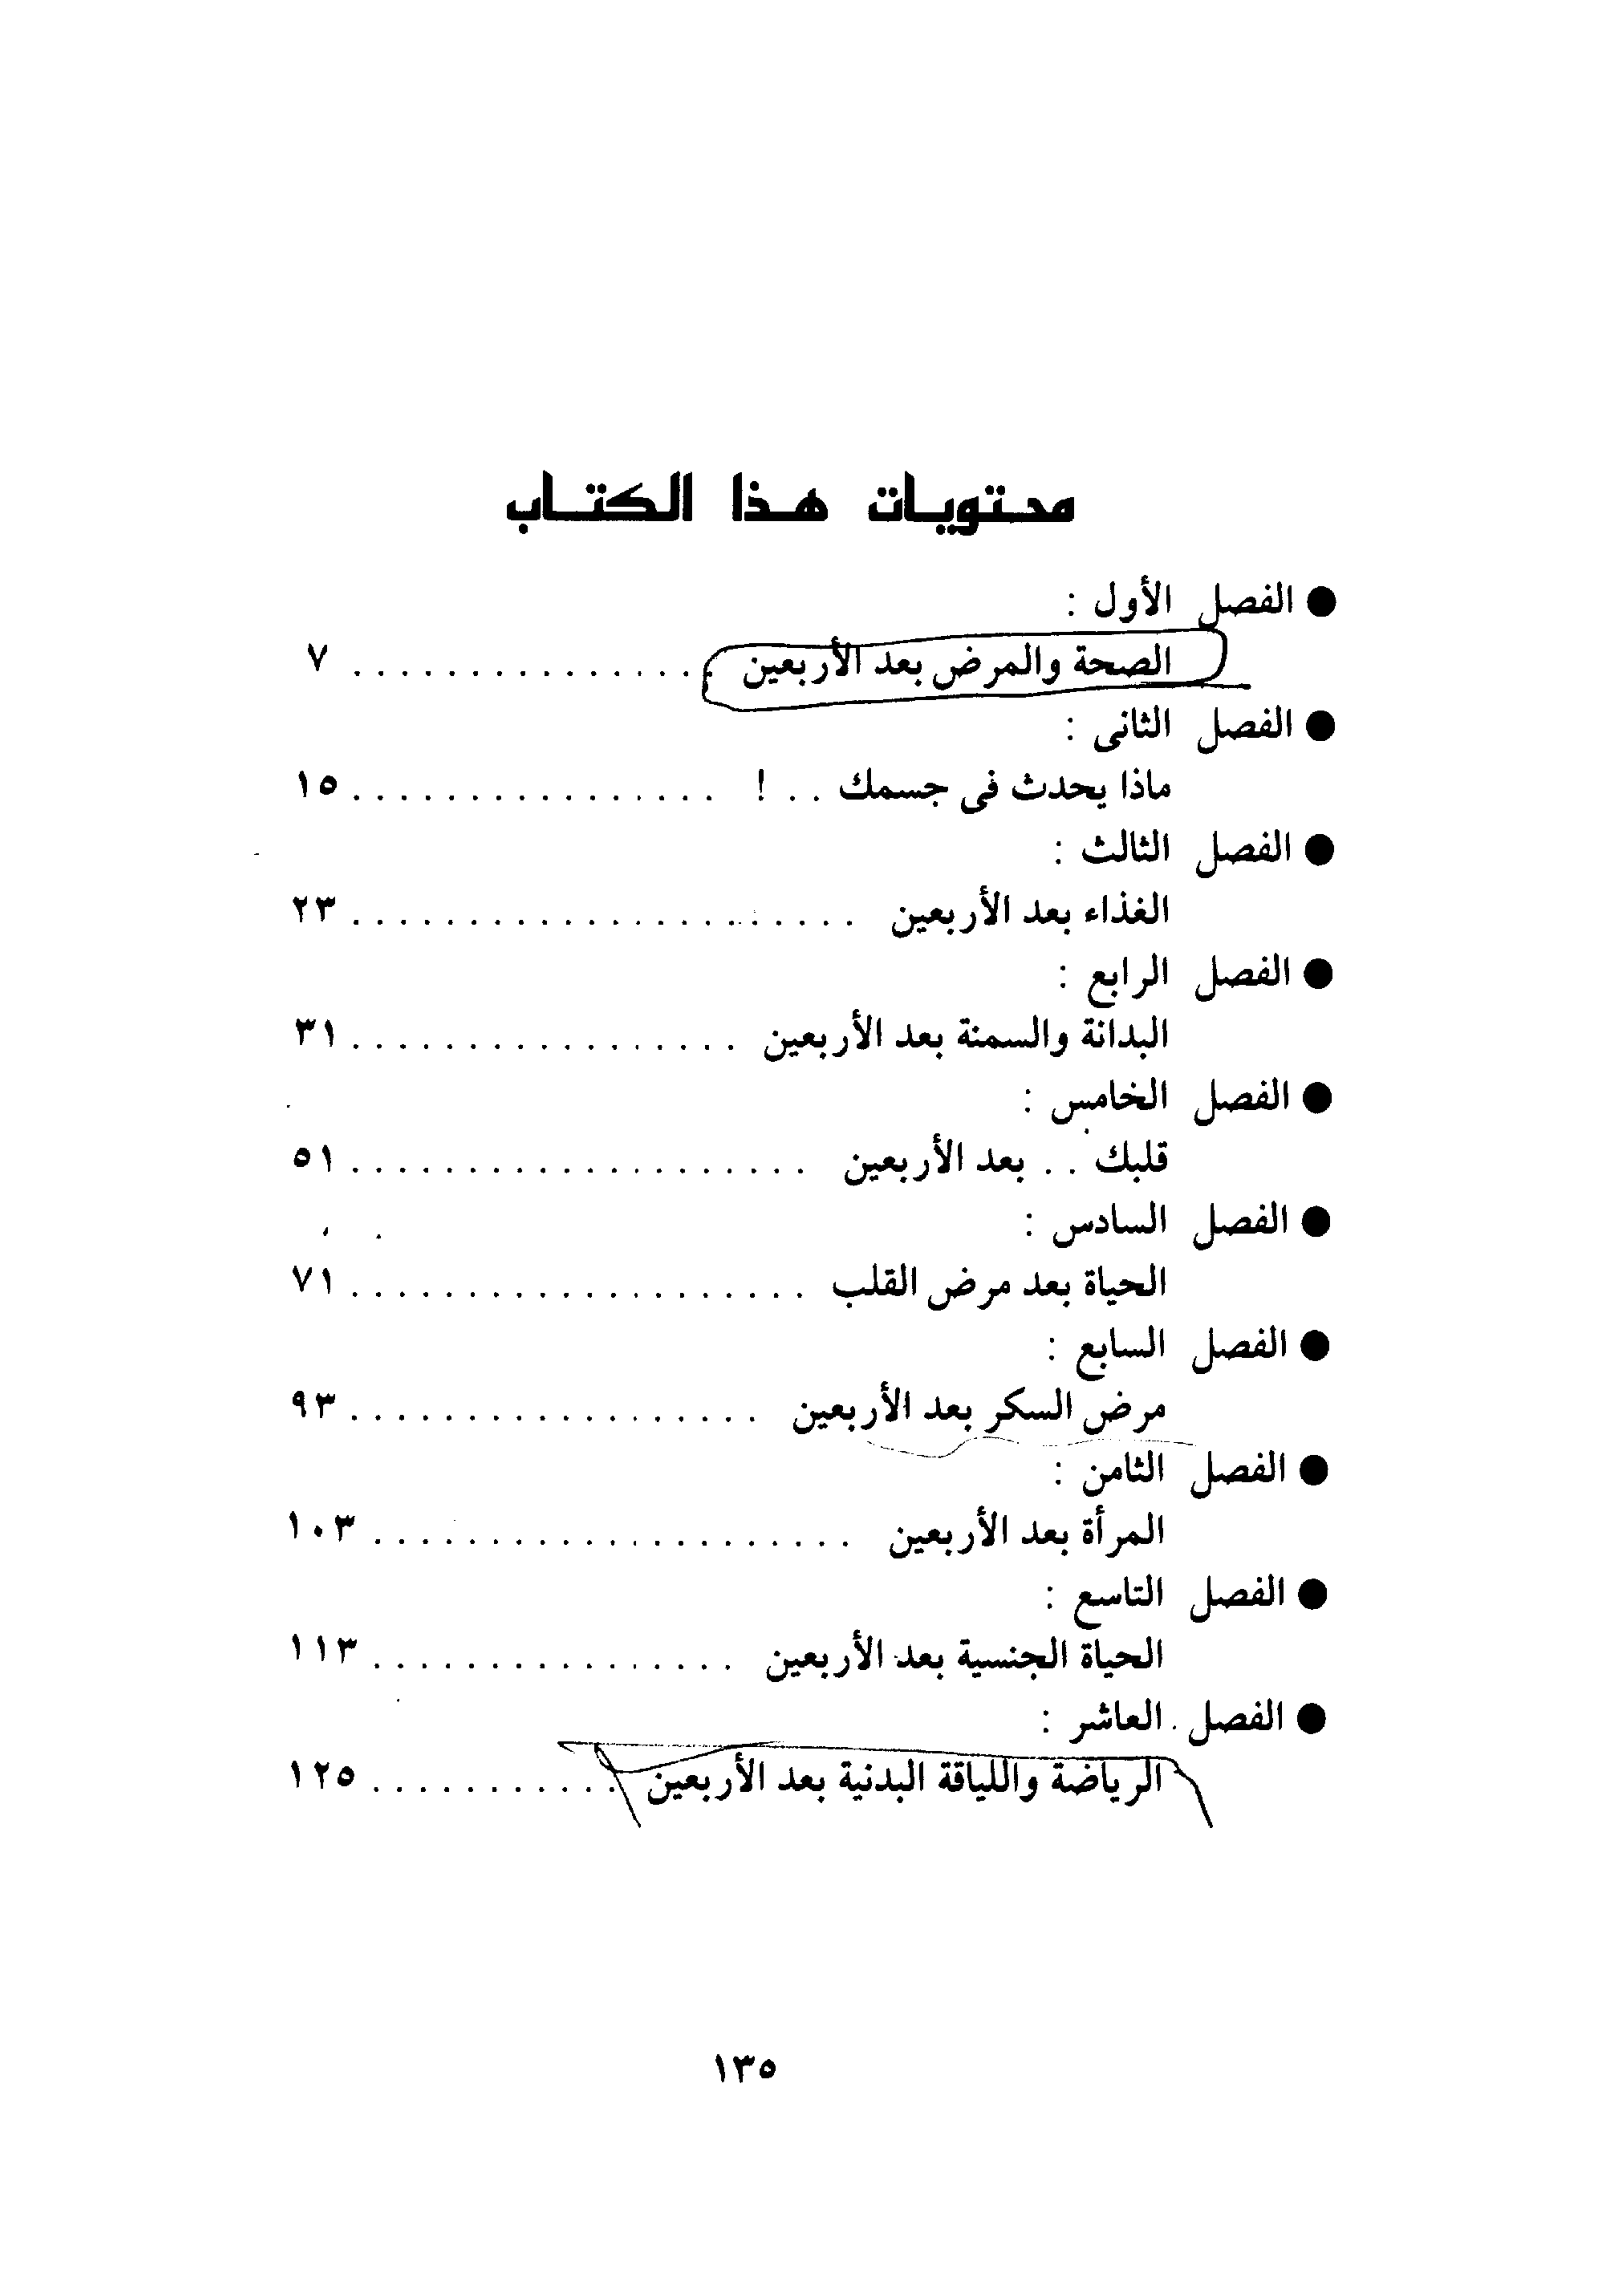 محتويات هذا الكتاب
● الفصل الأول :
الصحة والمرض بعد الأربعين . . . . . . . . . . . . . . . . ٧
● الفصل الثانى :
ماذا يحدث فى جسمك . . ! . . . . . . . . . . . . . . . . ١٥
● الفصل الثالث :
الغذاء بعد الأربعين . . . . . . . . . . . . . . . . . . . . . . ٢٣
● الفصل الرابع :
البدانة والسمنة بعد الأربعين . . . . . . . . . . . . . . . . . ٣١
● الفصل الخامس :
قلبك . . بعد الأربعين . . . . . . . . . . . . . . . . . . . . ٥١
● الفصل السادس :
الحياة بعد مرض القلب . . . . . . . . . . . . . . . . . . . . ٧١
● الفصل السابع :
مرض السكر بعد الأربعين . . . . . . . . . . . . . . . . . . ٩٣
● الفصل الثامن :
المرأة بعد الأربعين . . . . . . . . . . . . . . . . . . . . . ١٠٣
● الفصل التاسع :
الحياة الجنسية بعد الأربعين . . . . . . . . . . . . . . . . ١١٣
● الفصل العاشر :
الرياضة واللياقة البدنية بعد الأربعين . . . . . . . . . . . ١٢٥
١٣٥